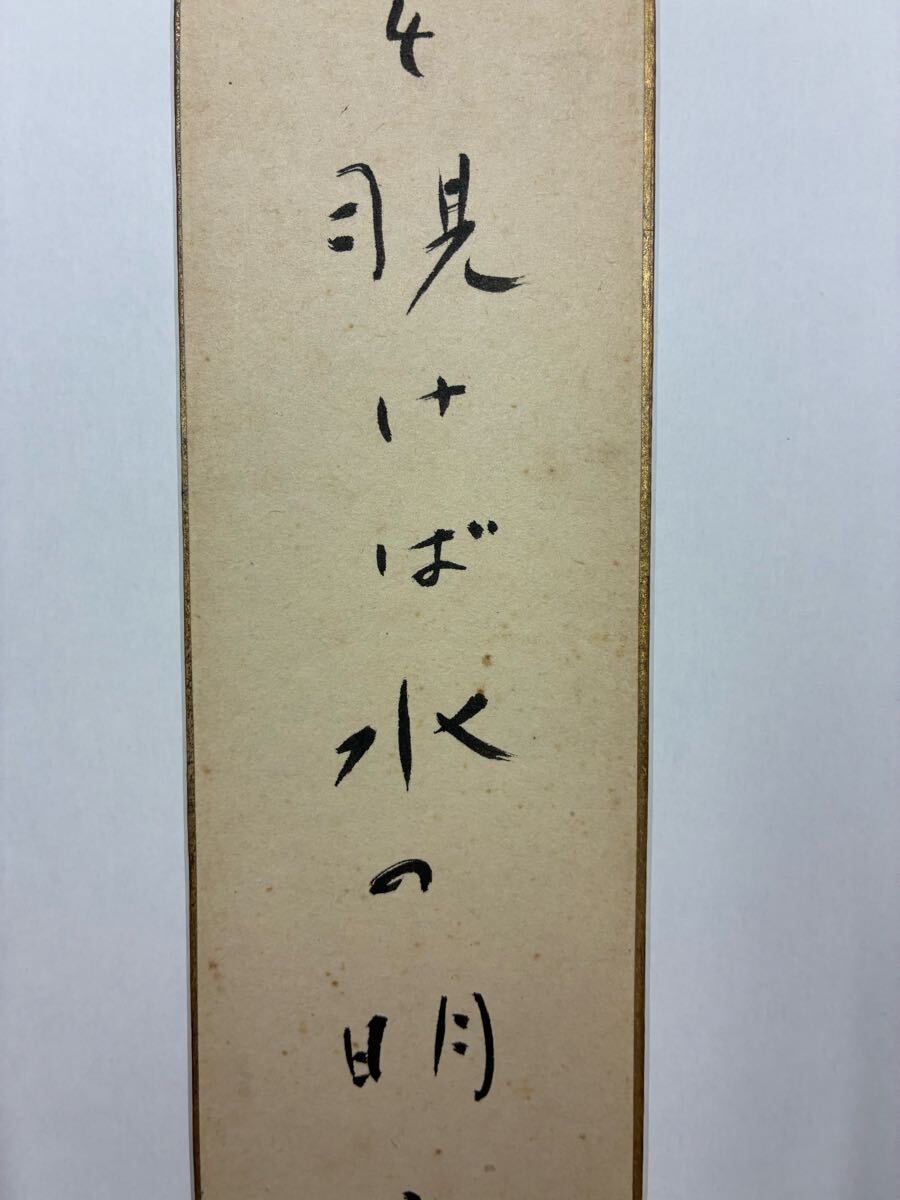 覗けば水の明